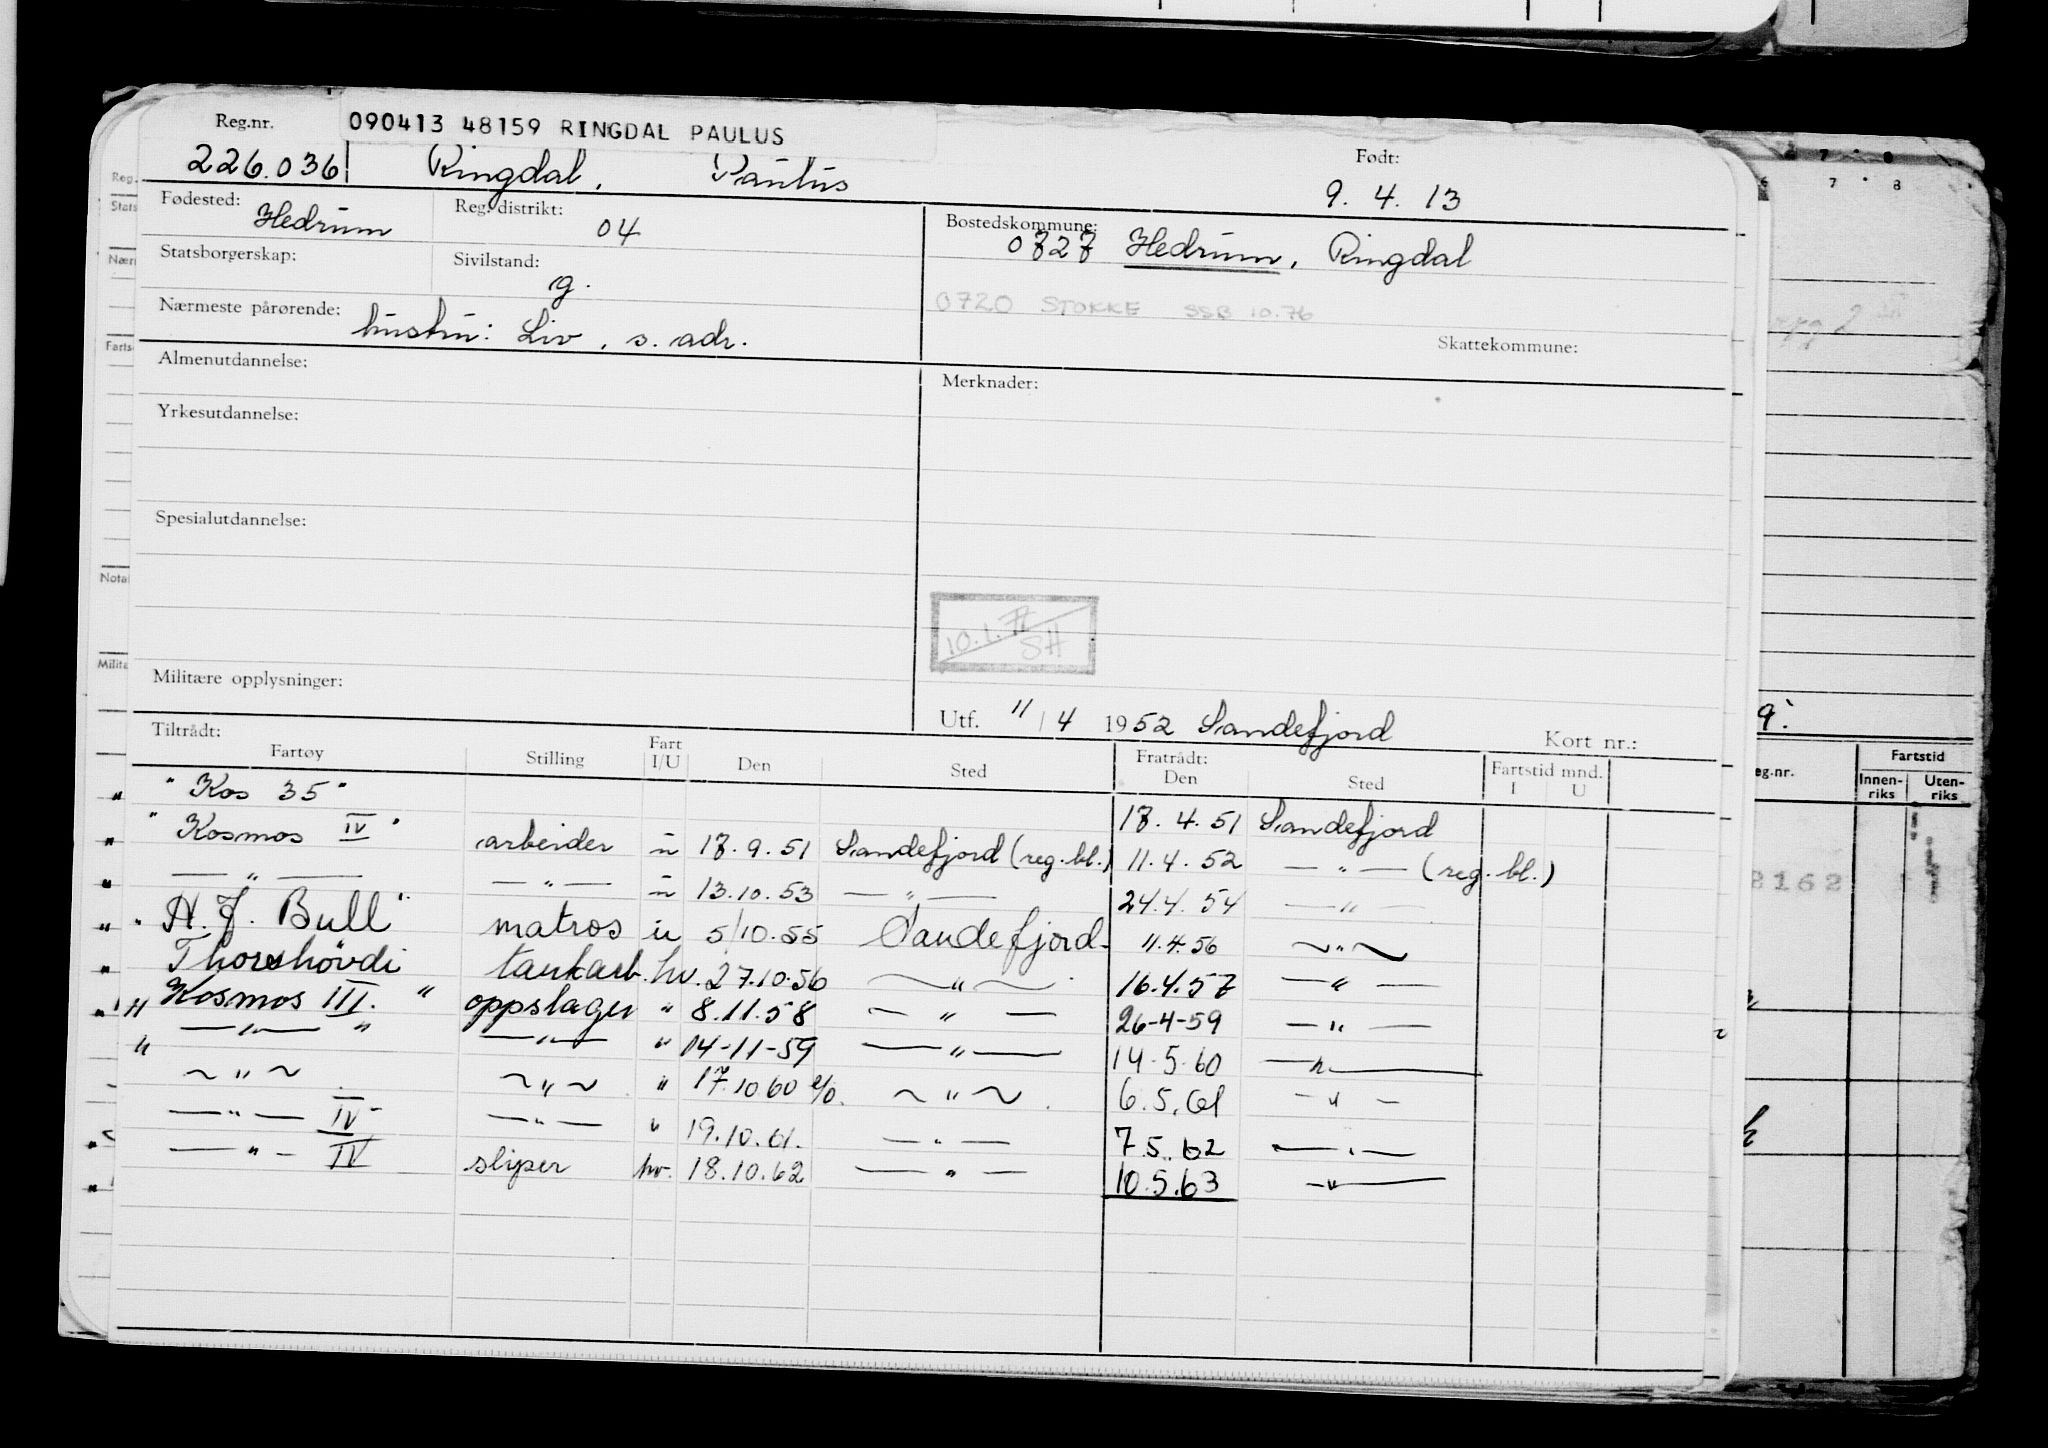 Reg.nr. 090413 48159 RINGDAL PAULUS
226.036 Ringdal, Paulus Født: 9. 4. 13
Fødested: Hedrum Reg. distrikt: 04 Bostedskommune: 0727 Hedrum, Ringdal
Statsborgerskap: Sivilstand: g.
0720 STOKKE SSB 10.76
Nærmeste pårørende: hustru: Liv, s. adr.
Skattekommune:
Almenutdannelse: Merknader:
Yrkesutdannelse:
Spesialutdannelse:
10.1.72 SH
Militære opplysninger:
Utf. 11/4 1952 Sandefjord Kort nr.:
Tiltrådt: Fratrådt:
Fartøy Stilling Fart I/U Den Sted Den Sted Fartstid mnd. I U
" Kos 35 " 17. 4. 51 Sandefjord
" Kosmos IV " arbeider u 17. 9. 51 Sandefjord (reg. bl.) 11. 4. 52 — " — (reg. bl.)
— " — — " — u 13.10.53 — " — 24.4.54 — " —
" A. J. Bull " matros u 5/10.55 Sandefjord. 11.4.56 ~ " ~
Thorshövdi tankarb. hv. 27.10.56 — " — 16.4.57 — " —
" Kosmos III. " oppslager " 8.11.58 — " — 26-4-59 — " —
" — " — " — " — " 14-11-59 — " — 14.5.60 — " —
~ " ~ ~ " ~ " 17.10 60 ~ " ~ 6.5.61 — " —
— " — IV — " — " 19.10.61. — " — 7.5.62 — " —
— " — IV sliper hv. 18.10.62 — " — 10.5.63 — " —
Reg.
Stats
Nær
Farts
Notat
Milita
7 8
7 8
eg.nr. Fartstid
Innen-riks Uten-riks
8162